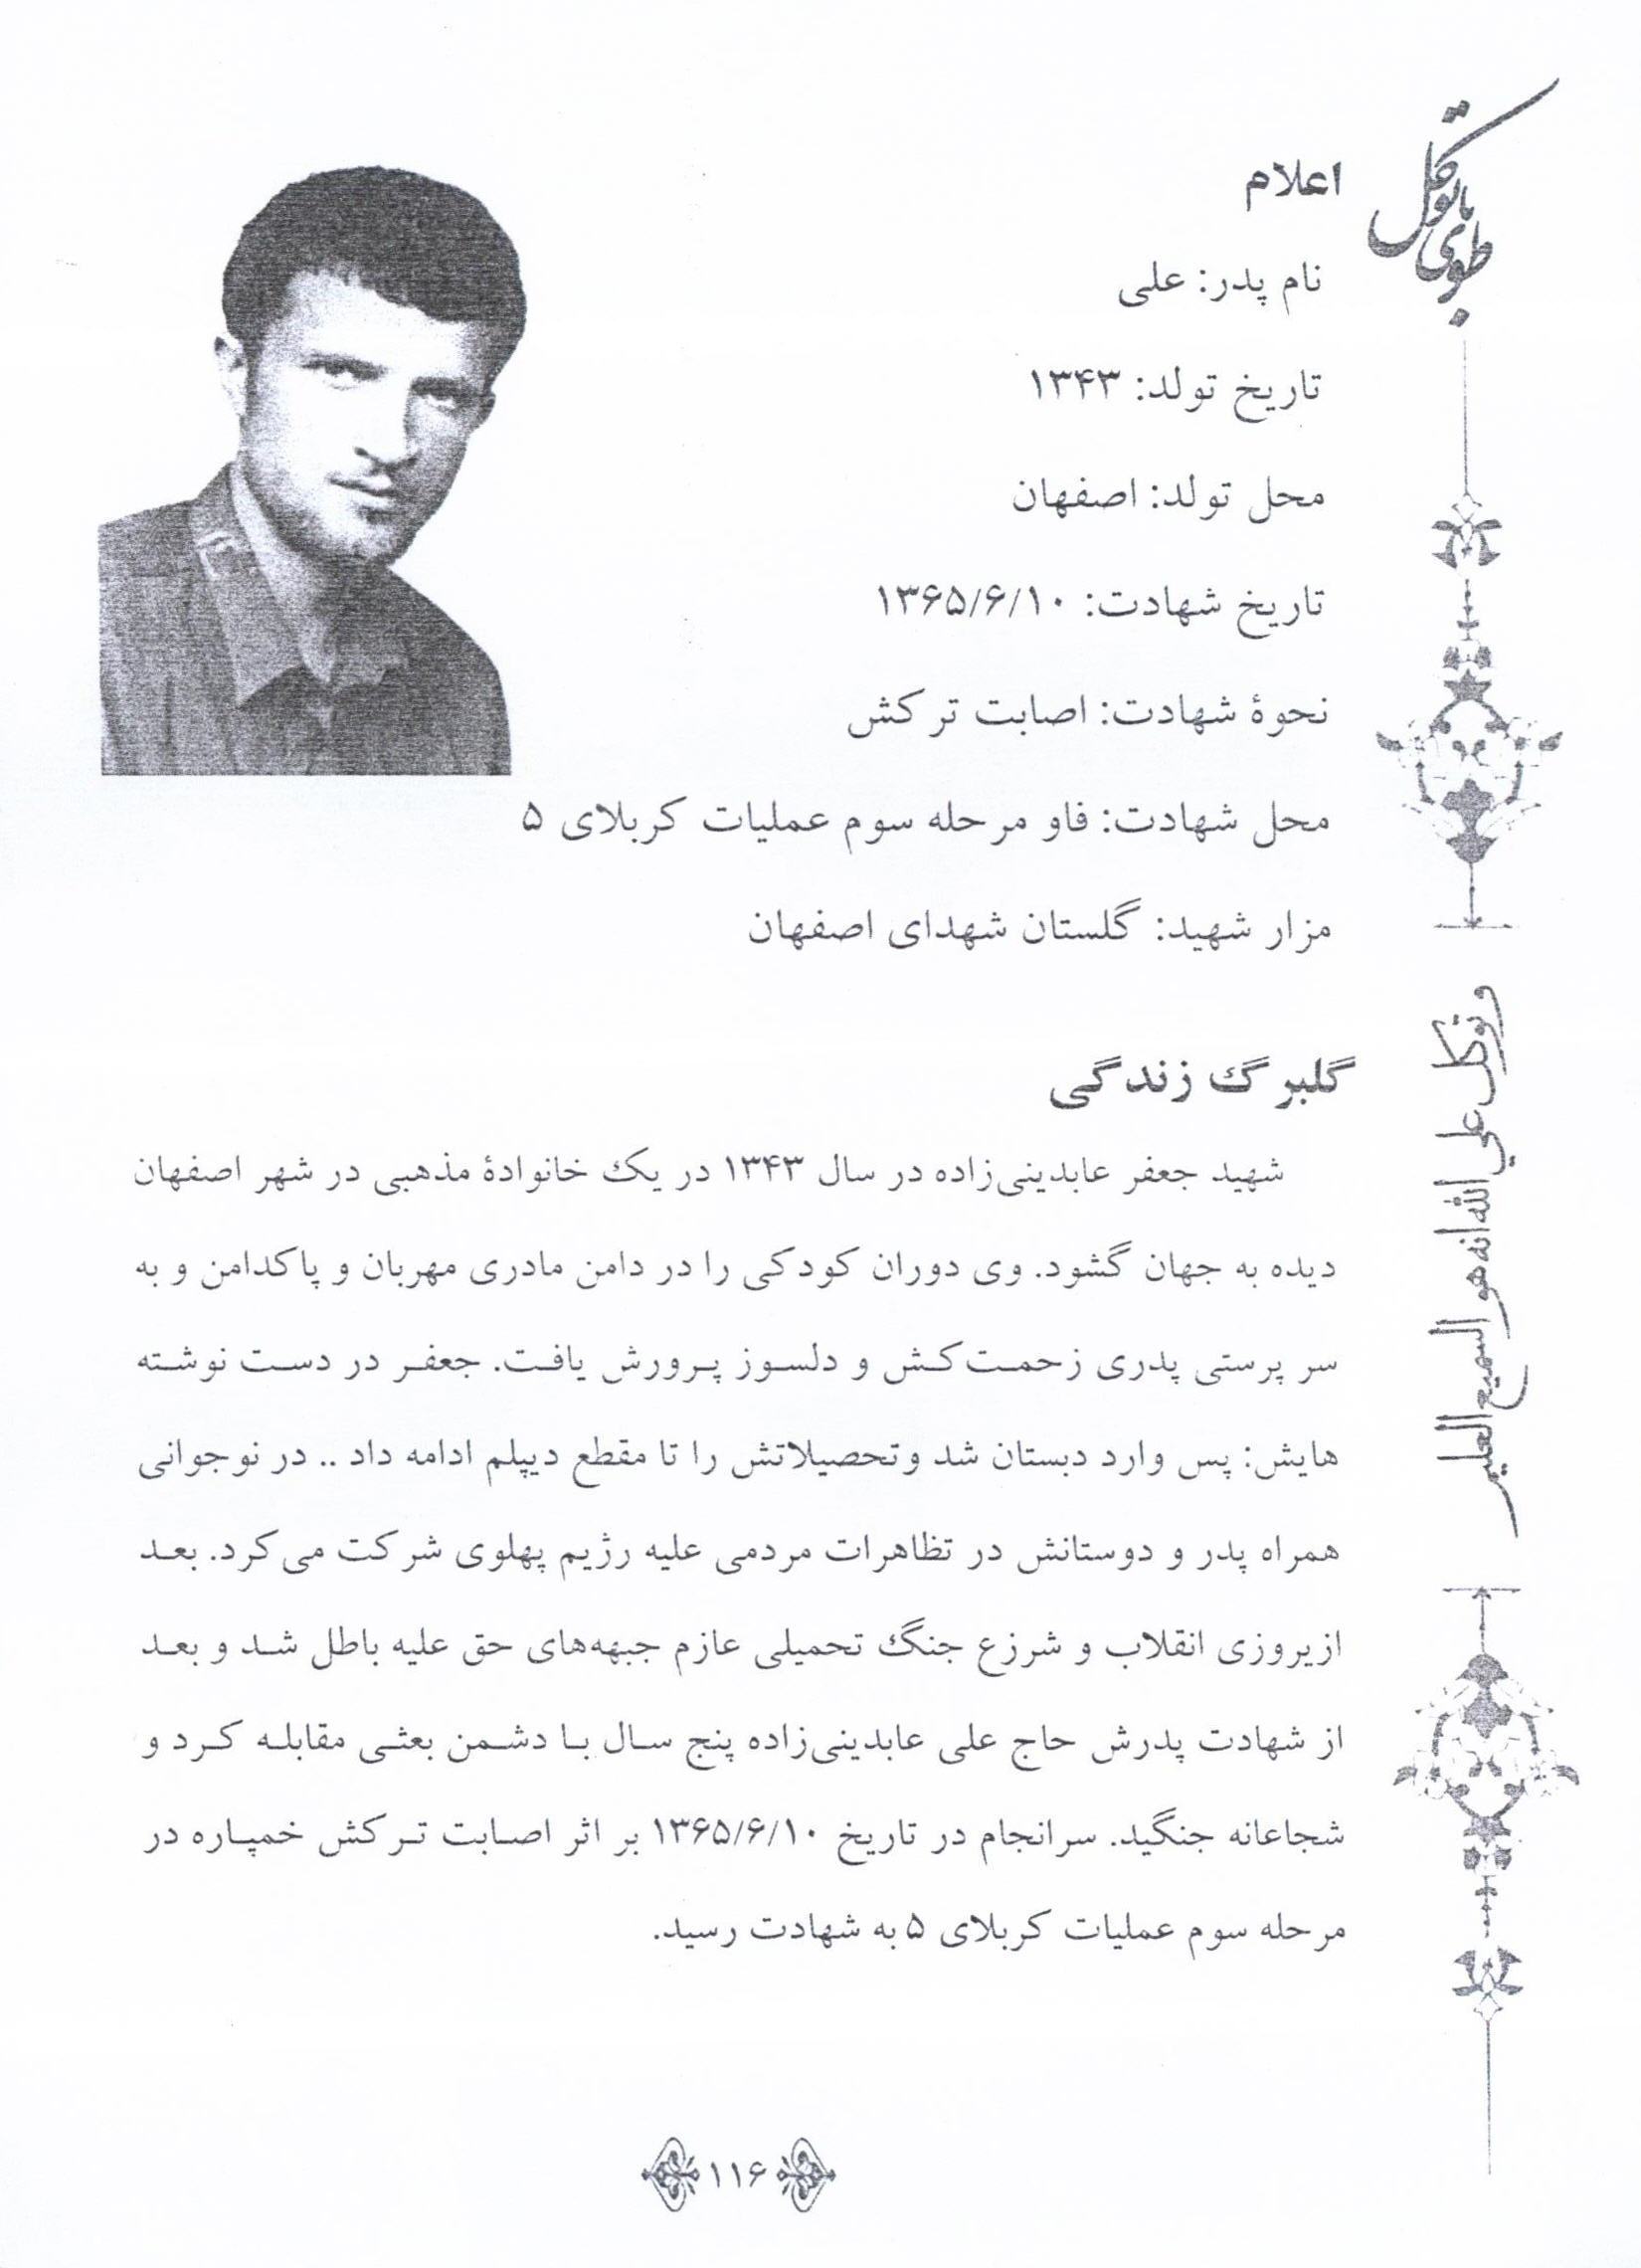 طوبای باتوکل
اعلام
نام پدر: علی
تاریخ تولد: ۱۳۴۳
محل تولد: اصفهان
تاریخ شهادت: ۱۳۶۵/۶/۱۰
نحوۀ شهادت: اصابت ترکش
محل شهادت: فاو مرحله سوم عملیات کربلای ۵
مزار شهید: گلستان شهدای اصفهان
گلبرگ زندگی
شهید جعفر عابدینی‌زاده در سال ۱۳۴۳ در یک خانوادۀ مذهبی در شهر اصفهان
دیده به جهان گشود. وی دوران کودکی را در دامن مادری مهربان و پاکدامن و به
سر پرستی پدری زحمت‌کش و دلسوز پرورش یافت. جعفر در دست نوشته
هایش: پس وارد دبستان شد وتحصیلاتش را تا مقطع دیپلم ادامه داد .. در نوجوانی
همراه پدر و دوستانش در تظاهرات مردمی علیه رژیم پهلوی شرکت می‌کرد. بعد
ازیروزی انقلاب و شرزع جنگ تحمیلی عازم جبهه‌های حق علیه باطل شد و بعد
از شهادت پدرش حاج علی عابدینی‌زاده پنج سال با دشمن بعثی مقابله کرد و
شجاعانه جنگید. سرانجام در تاریخ ۱۳۶۵/۶/۱۰ بر اثر اصابت ترکش خمپاره در
مرحله سوم عملیات کربلای ۵ به شهادت رسید.
و توکل علی الله انه هو السمیع العلیم
۱۱۶